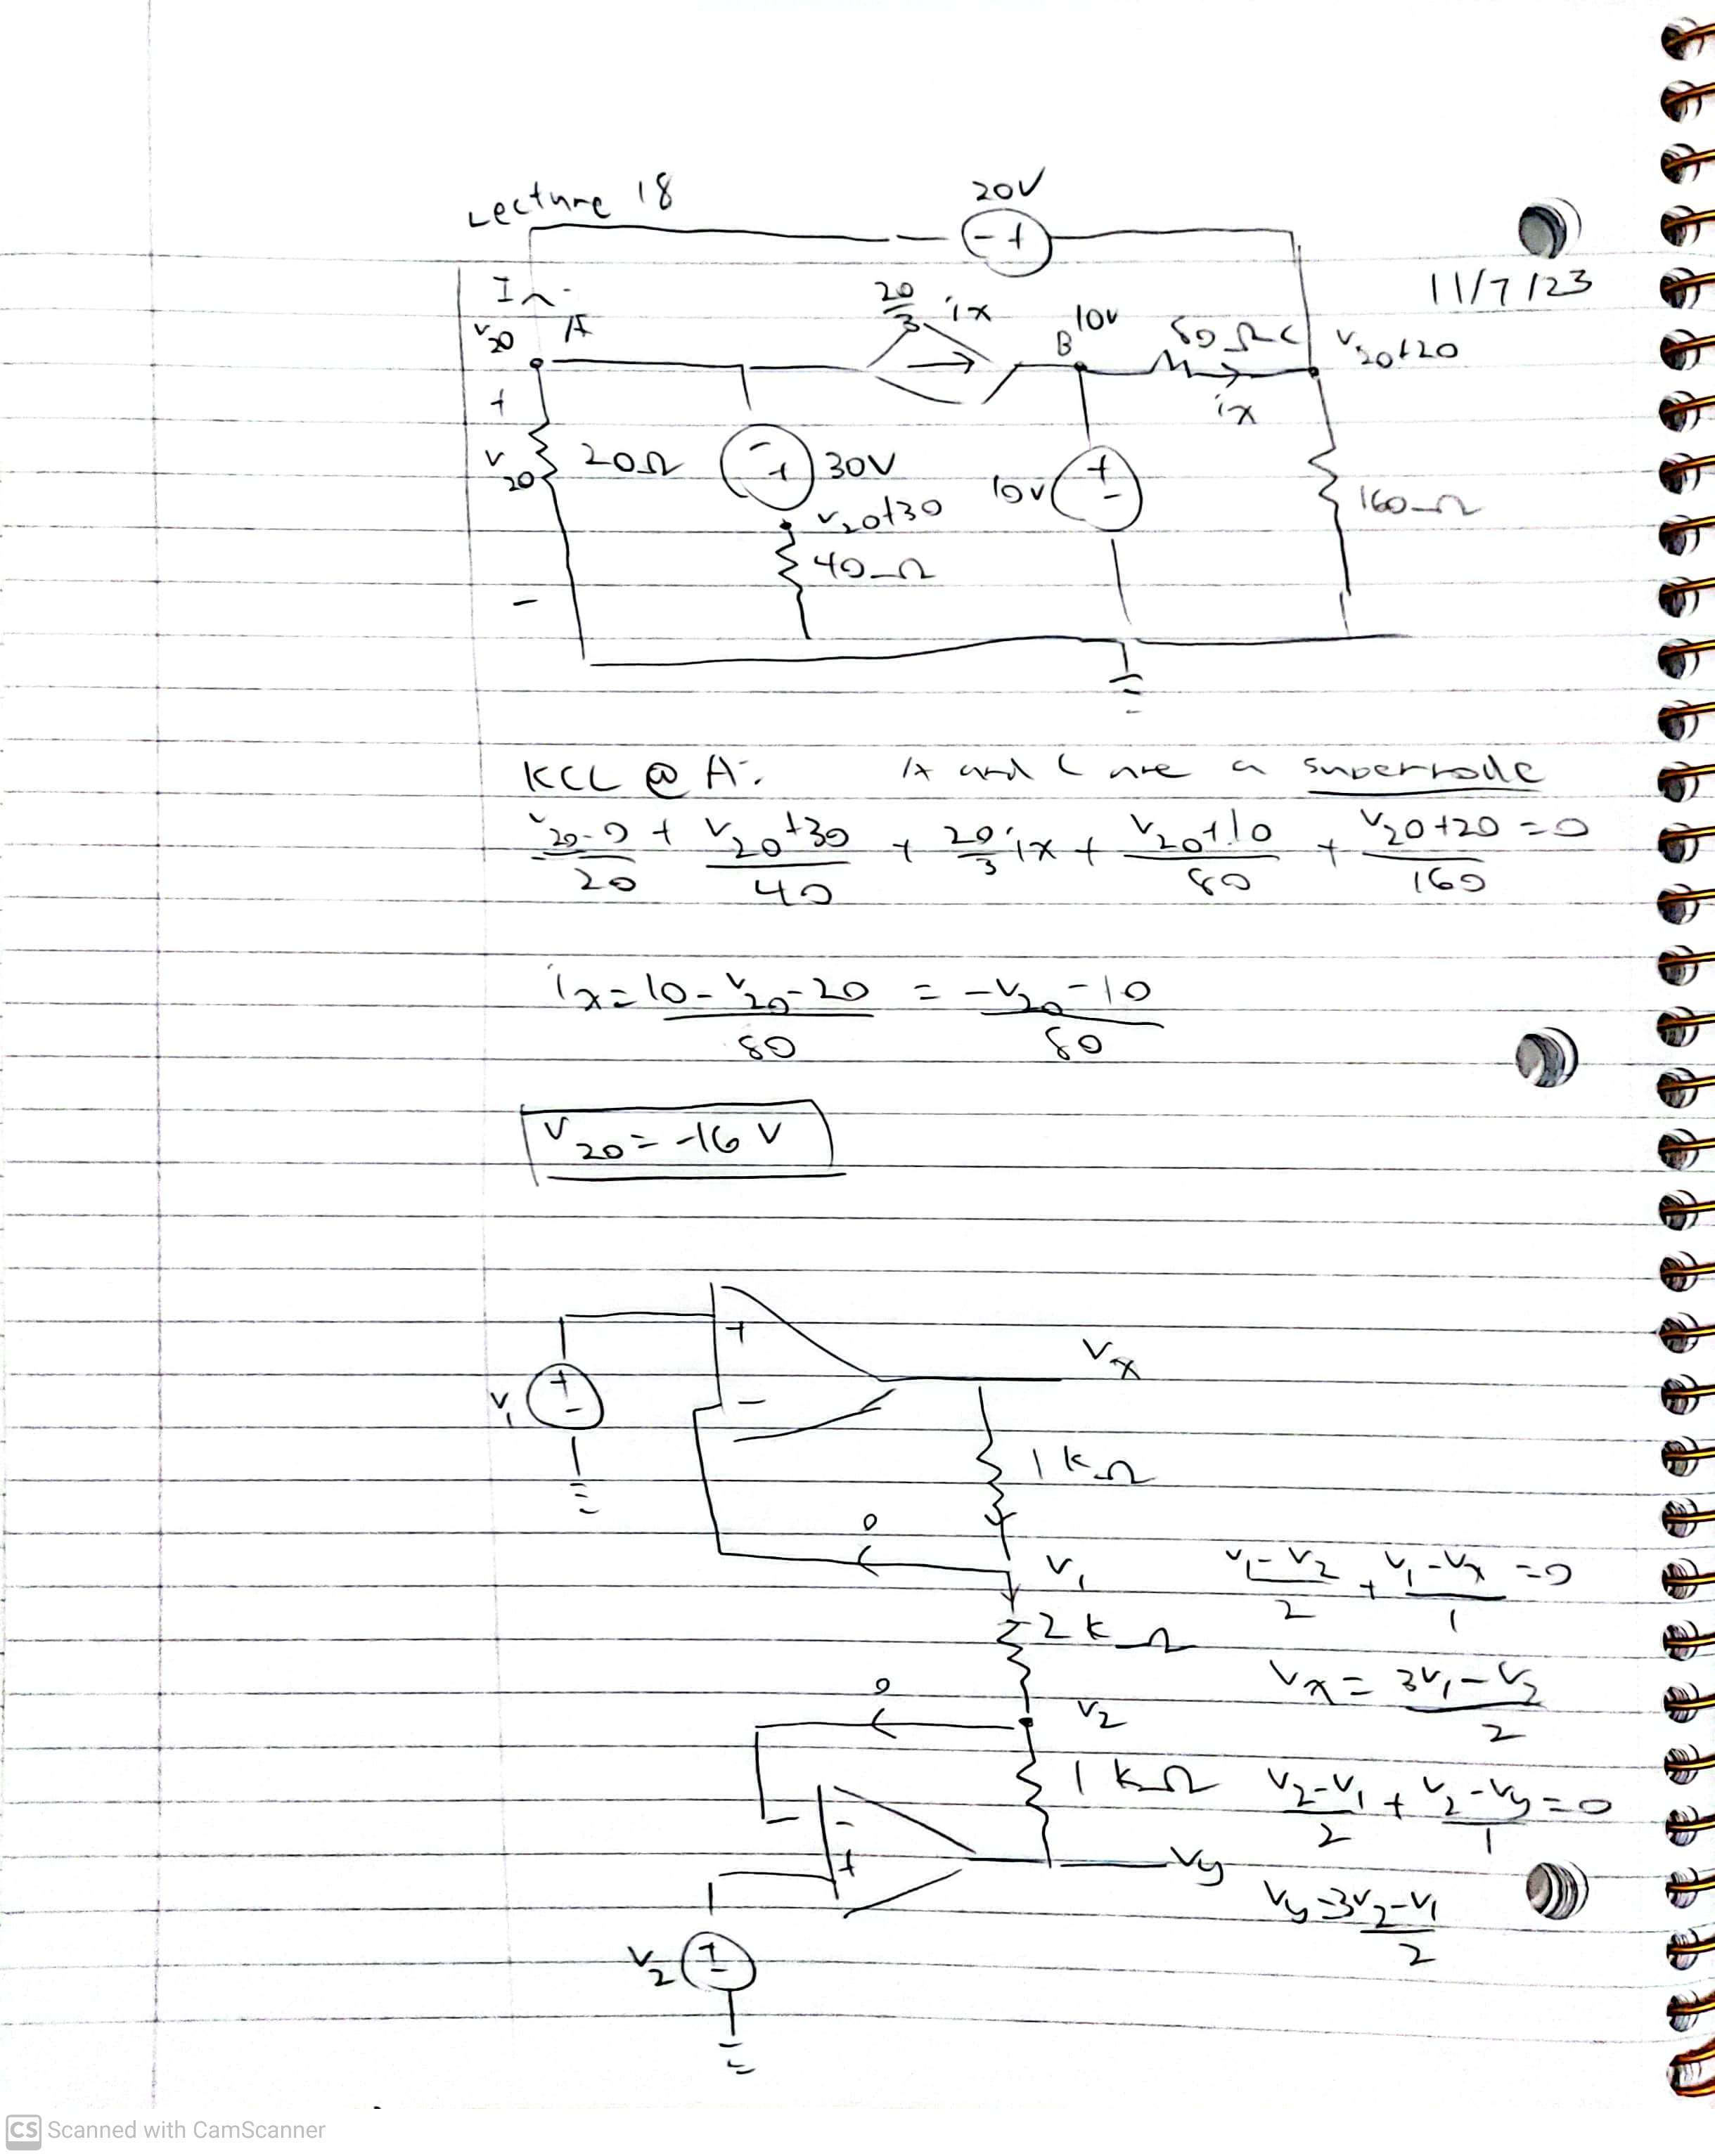 Lecture 18
20V
11/7/23
In.
V20 A
20/3 ix
B 10V
80Ω C
V20+20
ix
+
V20
-
20Ω
- +
30V
V20+30
40Ω
10V
+
-
160Ω
KCL @ A: A and C are a supernode
V20-0/20 + V20+30/40 + 20/3 ix + V20+10/80 + V20+20/160 = 0
ix = 10-V20-20/80 = -V20-10/80
V20 = -16 V
V1
+
-
+
-
Vx
1 kΩ
0
V1
V1-V2/2 + V1-Vx/1 = 0
2 kΩ
Vx = 3V1-V2/2
0
V2
1 kΩ
V2-V1/2 + V2-Vy/1 = 0
-
+
Vy
Vy = 3V2-V1/2
V2
+
-
CS Scanned with CamScanner